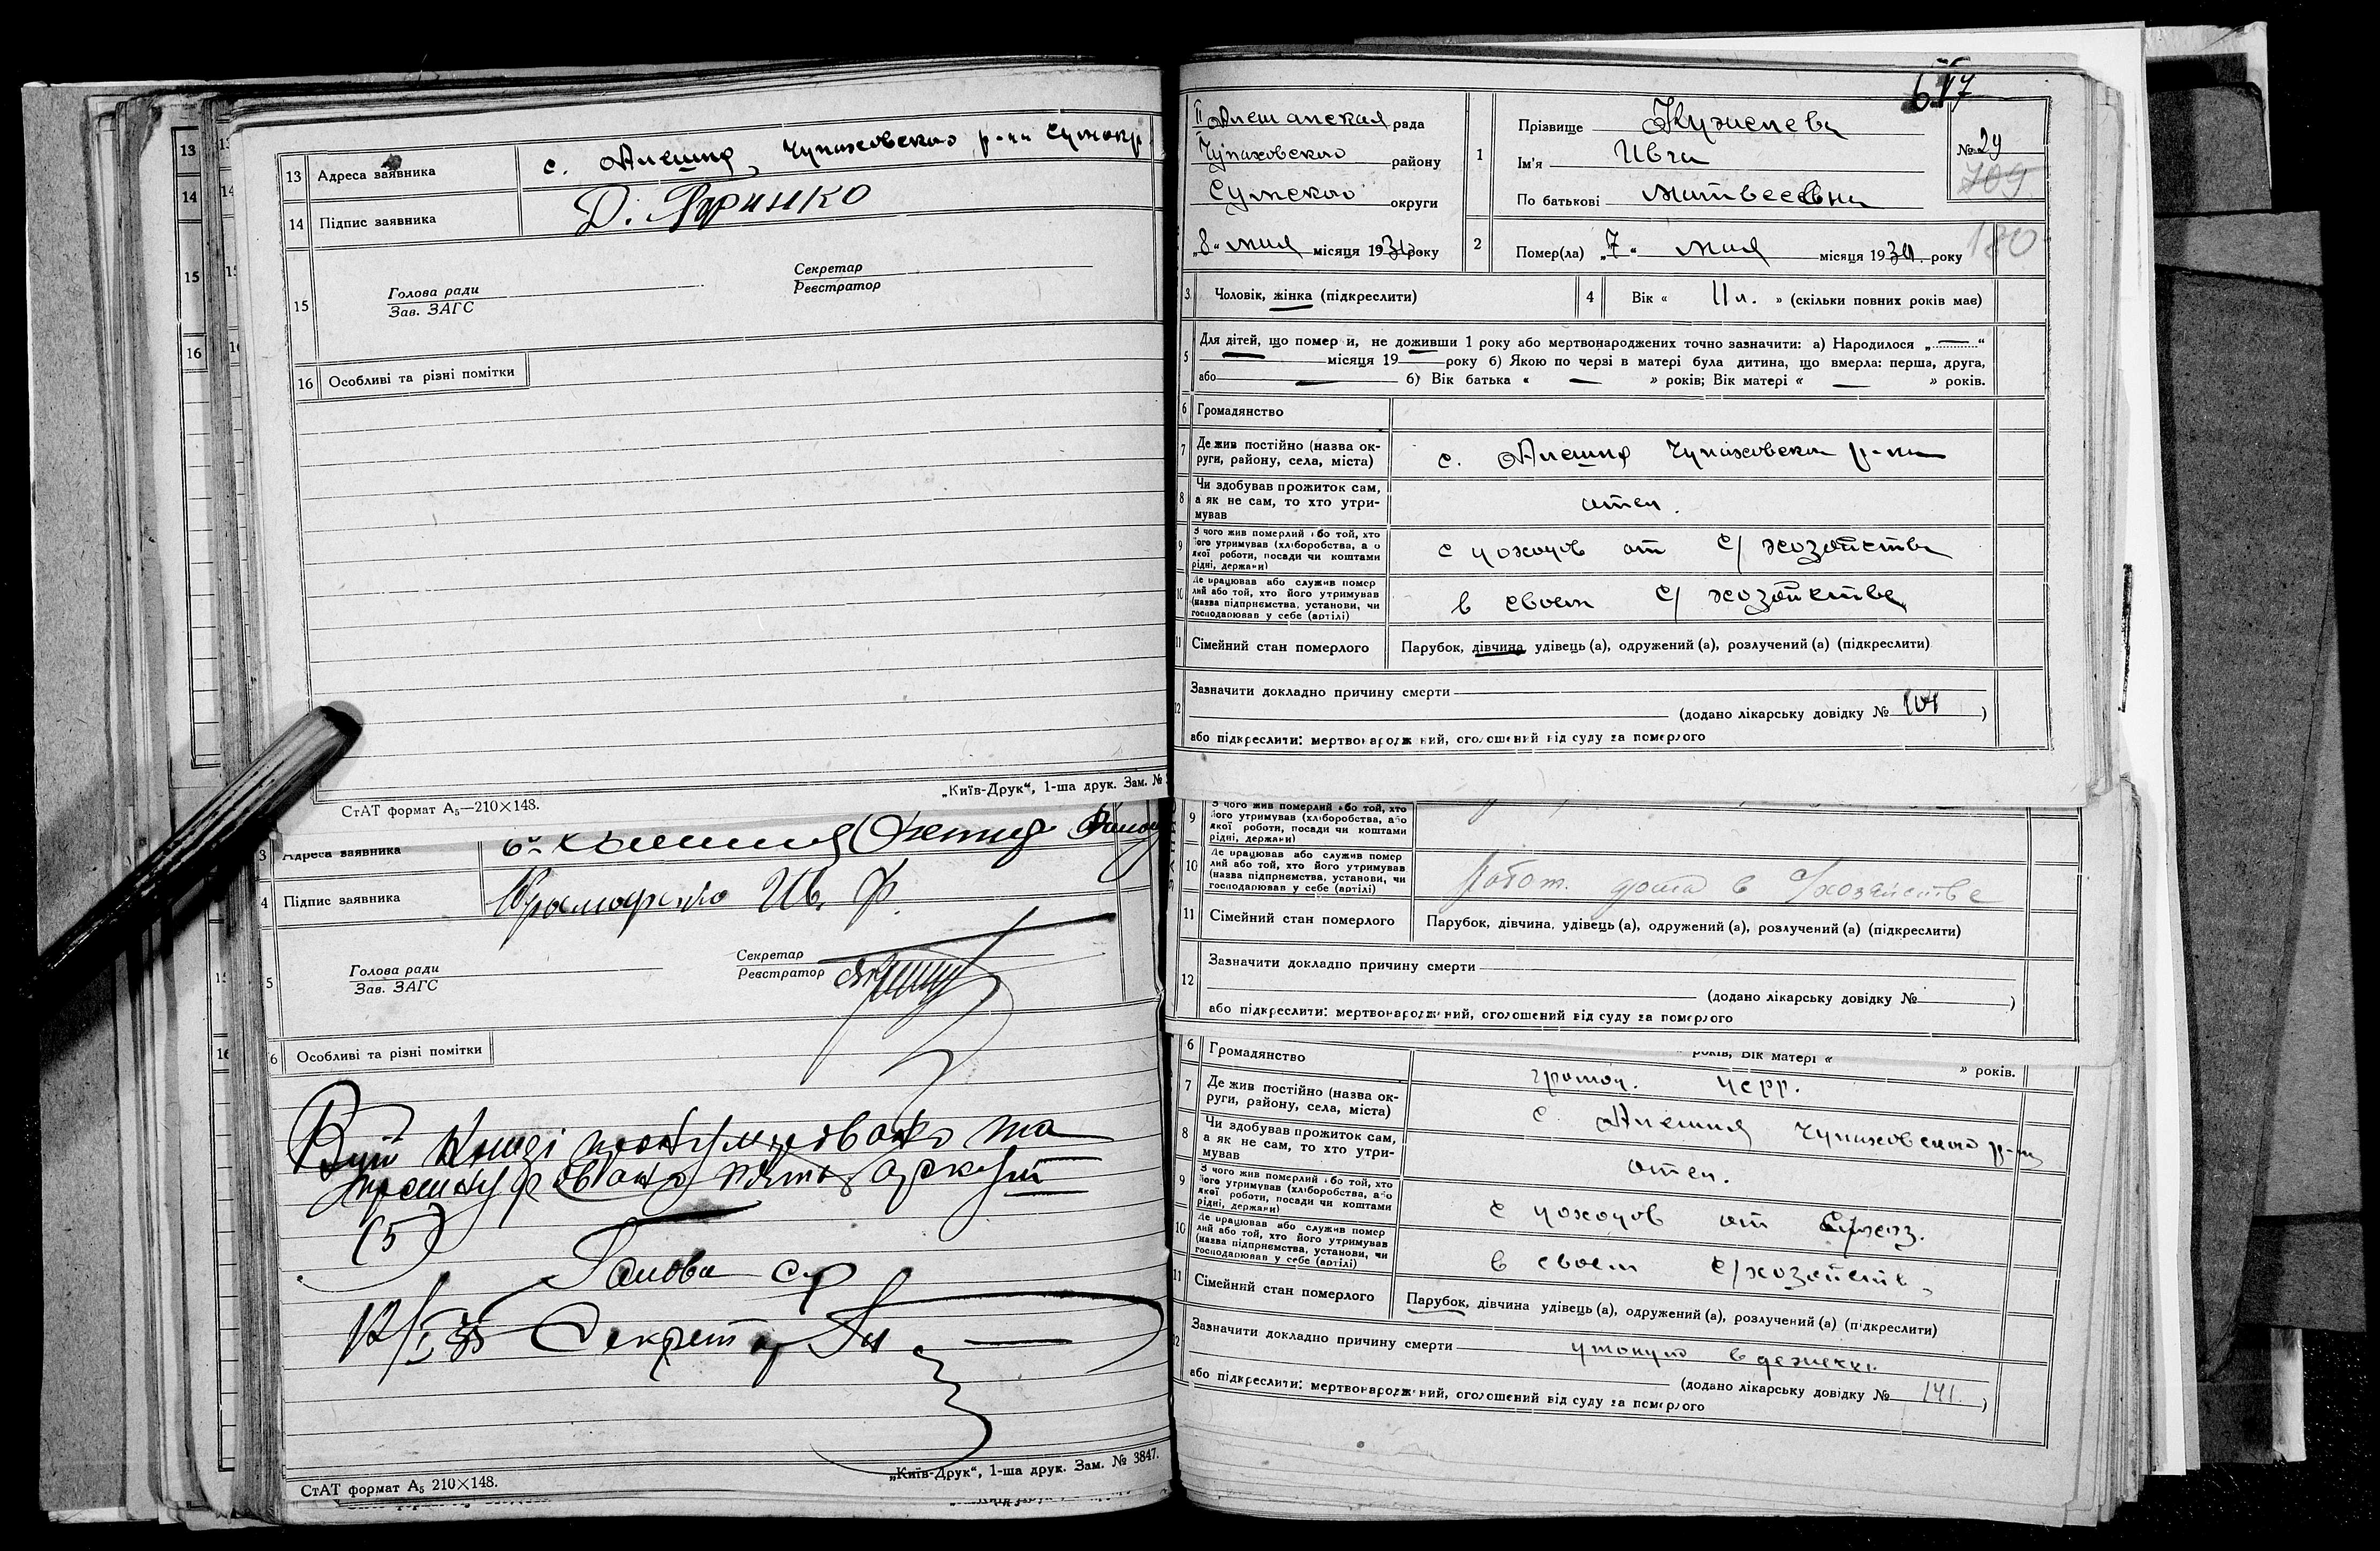 13 Адреса заявника с. Алешня, Чупаховского р-на Сумокр
14 Підпис заявника
15
Голова ради
Зав. ЗАГС
Секретар
Реєстратор
16 Особливі та різні помітки
СтАТ формат А₅—210×148.
„Київ-Друк“, 1-ша друк. Зам. №
Адреса заявника
Підпис заявника Ив. Ф.
Голова ради
Зав. ЗАГС
Секретар
Реєстратор
Особливі та різні помітки
В цій книзі пронумеровано та
прошнуровано пять аркушів
(5)
Голова с/р
Секретар
СтАТ формат А₅ 210×148.
„Київ-Друк“, 1-ша друк. Зам. № 3847.
617
II Алешанская рада
Чупаховского району
Сумского округи
„8“ мая місяця 1934 року
1
Прізвище
Ім'я
По батькові Матвеевна
№ 29
709
180
2 Помер(ла) „7“ мая місяця 1934 року
3 Чоловік, жінка (підкреслити)
4 Вік « 11 л. » (скільки повних років має)
5 Для дітей, що померли, не доживши 1 року або мертвонароджених точно зазначити: а) Народилося „ — “
місяця 19 року б) Якою по черзі в матері була дитина, що вмерла: перша, друга,
або — б) Вік батька « — » років; Вік матері « — » років.
6 Громадянство
7 Де жив постійно (назва округи, району, села, міста) с. Алешня Чупаховском р-на
8 Чи здобував прожиток сам, а як не сам, то хто утримував отец.
9 З чого жив померлий або той, хто його утримував (хліборобства, або якої роботи, посади чи коштами рідні, держави) с доходов от с/хозяйства
10 Де працював або служив померлий або той, хто його утримував (назва підприємства, установи, чи господарював у себе (артілі) в своем с/хозяйстве
11 Сімейний стан померлого Парубок, дівчина, удівець (а), одружений (а), розлучений (а) (підкреслити)
12 Зазначити докладно причину смерти
(додано лікарську довідку № 101 )
або підкреслити: мертвонароджений, оголошений від суду за померлого
9 З чого жив померлий або той, хто його утримував (хліборобства, або якої роботи, посади чи коштами рідні, держави)
10 Де працював або служив померлий або той, хто його утримував (назва підприємства, установи, чи господарював у себе (артілі) Работ. дома в с/хозяйстве
11 Сімейний стан померлого Парубок, дівчина, удівець (а), одружений (а), розлучений (а) (підкреслити)
12 Зазначити докладно причину смерти
(додано лікарську довідку № )
або підкреслити: мертвонароджений, оголошений від суду за померлого
років; Вік матері « » років.
6 Громадянство
7 Де жив постійно (назва округи, району, села, міста) с. Алешня Чупаховского р-на
8 Чи здобував прожиток сам, а як не сам, то хто утримував отец.
9 З чого жив померлий або той, хто його утримував (хліборобства, або якої роботи, посади чи коштами рідні, держави) с доходов от с/хоз.
10 Де працював або служив померлий або той, хто його утримував (назва підприємства, установи, чи господарював у себе (артілі) в своем с/хозяйств
11 Сімейний стан померлого Парубок, дівчина удівець (а), одружений (а), розлучений (а) (підкреслити)
12 Зазначити докладно причину смерти утонул
(додано лікарську довідку № 141. )
або підкреслити: мертвонароджений, оголошений від суду за померлого